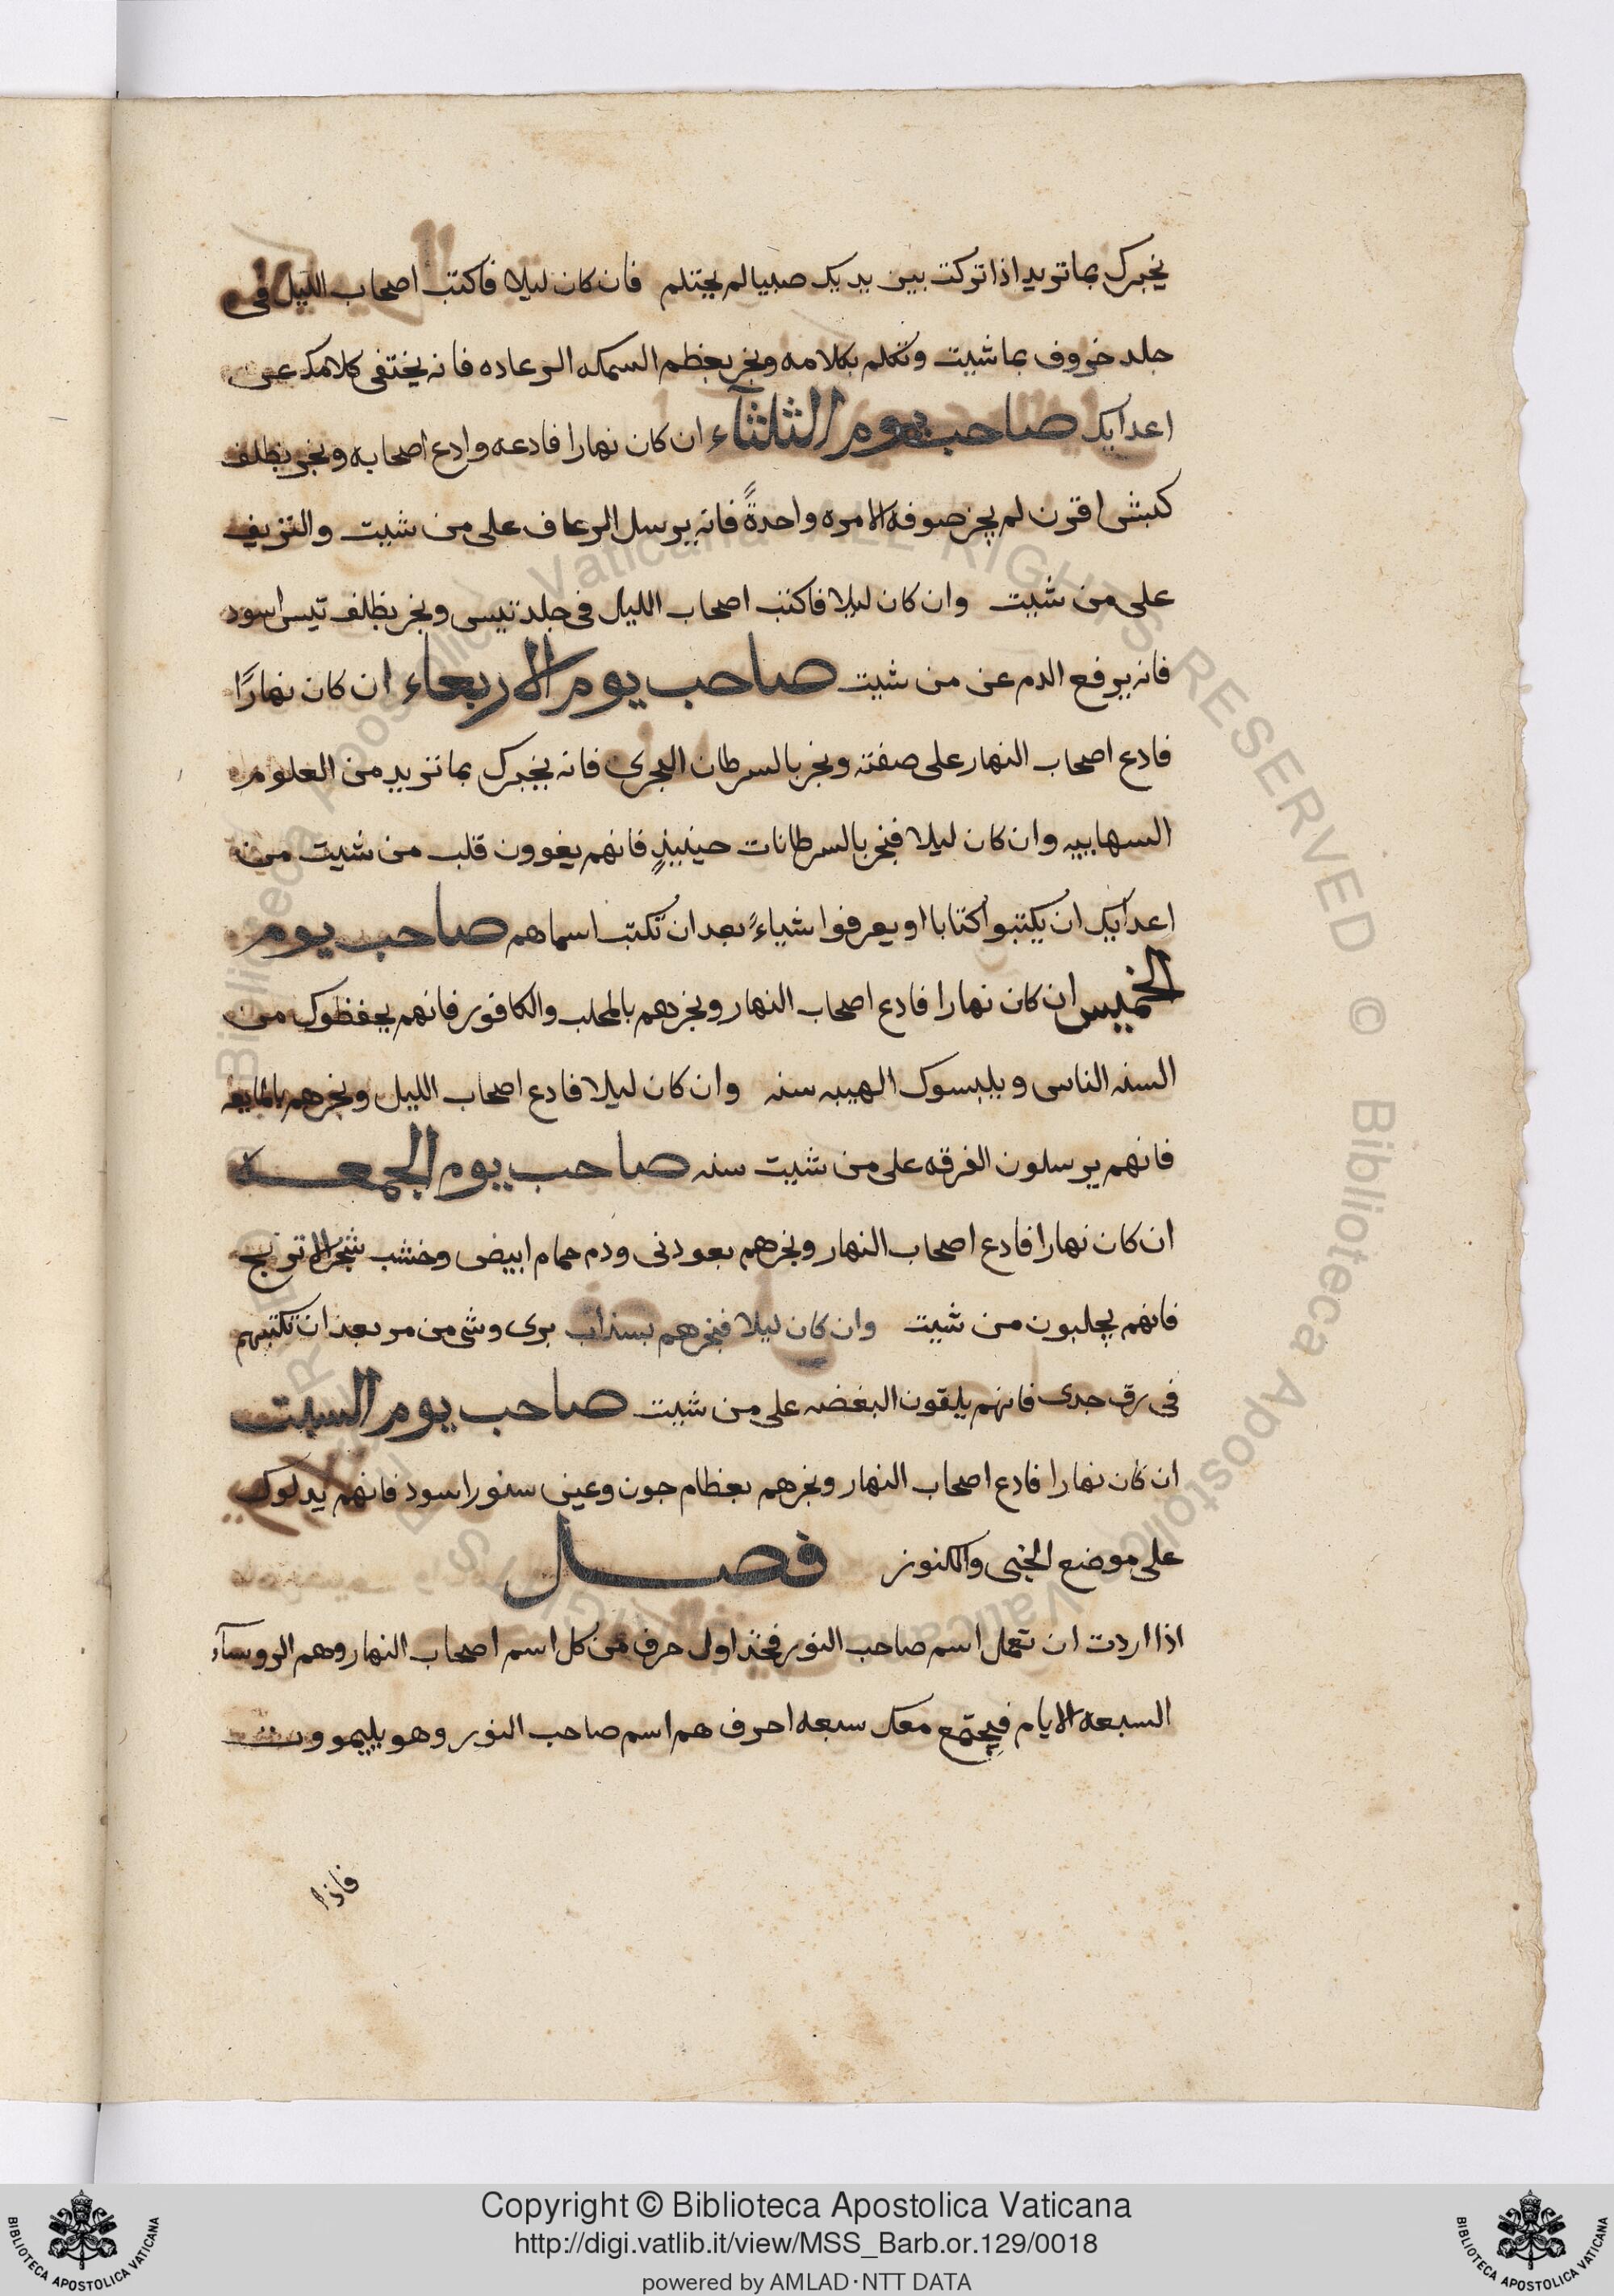 يخبرك بما تريد اذا تركت بين يديك صبيا لم يحتلم فان كان ليلا فاكتب اصحاب الليل فى
جلد خروف بما شيت وتكلم بكلامه وبخر بعظم السمكه الرعاده فانه يختفى كلامك عن
اعدايك صاحب يوم الثلثآء ان كان نهارا فادعه وادع اصحابه وبخر بظلف
كبش اقرن لم يجز صوفه الا مره واحدةً فانه يرسل الرعاف على من شيت والنزيف
على من شيت وان كان ليلا فاكتب اصحاب الليل فى جلد تيس وبخر بظلف تيس اسود
فانه يرفع الدم عن من شيت صاحب يوم الاربعاء ان كان نهارًا
فادع اصحاب النهار على صفته وبخر بالسرطان البحرى فانه يخبرك بما تريد من العلوم
السهابيه وان كان ليلا فبخر بالسرطانات حينيذٍ فانهم يغوون قلب من شيت من
اعدايك ان يكتبوا كتابا او يعرفوا شياءً بعد ان تكتب اسماهم صاحب يوم
الخميس ان كان نهارا فادع اصحاب النهار وبخرهم بالمحلب والكافور فانهم يحفظوك من
السنه الناس ويلبسوك الهيبه سنه وان كان ليلا فادع اصحاب الليل وبخرهم بالمايعه
فانهم يرسلون الفرقه على من شيت سنه صاحب يوم الجمعه
ان كان نهارا فادع اصحاب النهار وبخرهم بعود نى ودم حمام ابيض وخشب شجر الاترنج
فانهم يجلبون من شيت وان كان ليلا فبخرهم بسذاب برى وشى من مر بعد ان تكتبهم
فى رق جدى فانهم يلقون البغضه على من شيت صاحب يوم السبت
ان كان نهارا فادع اصحاب النهار وبخرهم بعظام جون وعينى سنور اسود فانهم يدلوك
على موضع الخبى والكنوز فصل
اذا اردت ان تعمل اسم صاحب النور فخذ اول حرف من كل اسم اصحاب النهار وهم الروسآء
السبعه الايام فيجتمع معك سبعه احرف هم اسم صاحب النور وهو
فاذا
Copyright © Biblioteca Apostolica Vaticana
http://digi.vatlib.it/view/MSS_Barb.or.129/0018
powered by AMLAD·NTT DATA